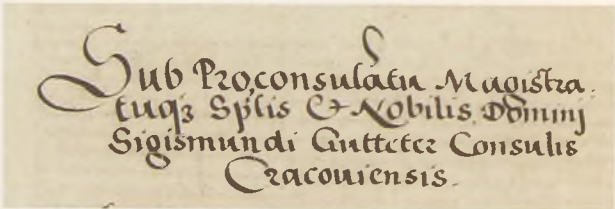 Sub Proconsulatu Magistra.
tuq3 Sp̃lis & Nobilis Dõmini
Sigismundi Gutteter Consulis
Cracouiensis.